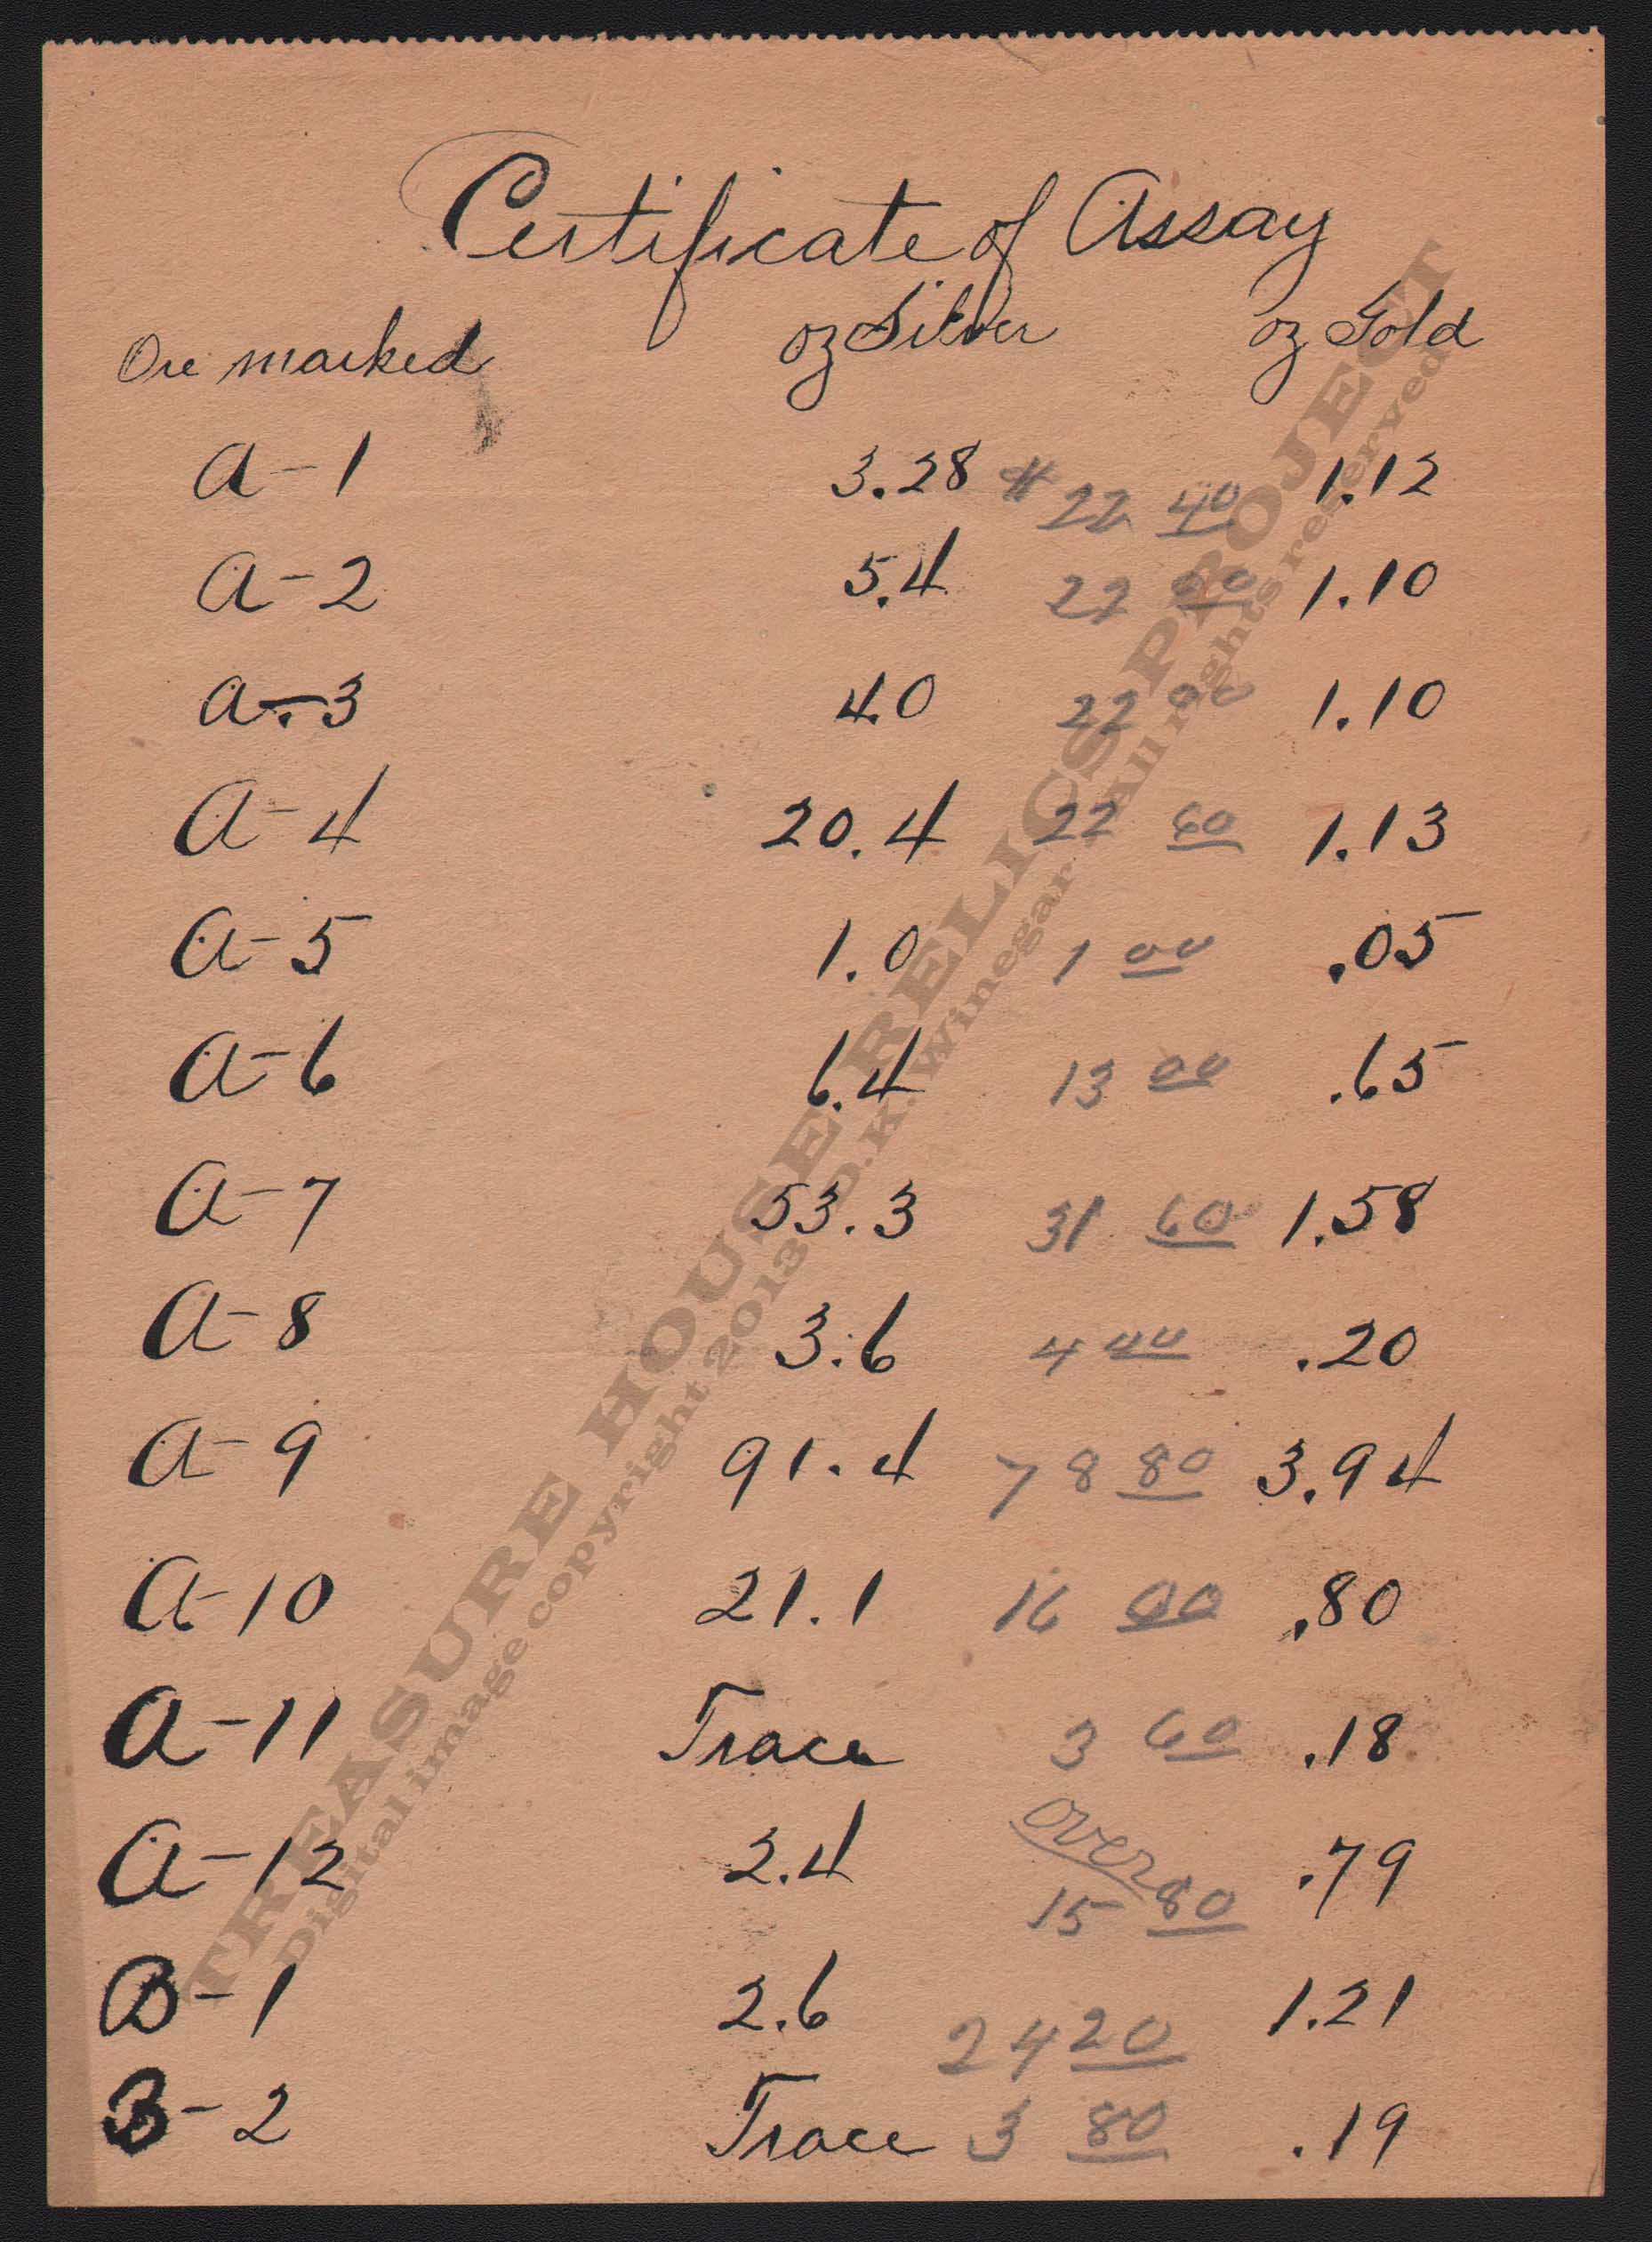 Certificate of Assay
Ore marked oz Silver oz Gold
A-1 3.28 # 22 40 1.12
A-2 5.4 22 00 1.10
A-3 4.0 22 00 1.10
A-4 20.4 22 60 1.13
A-5 1.0 1 00 .05
A-6 6.4 13 00 .65
A-7 53.3 31 60 1.58
A-8 3.6 4 00 .20
A-9 91.4 78 80 3.94
A-10 21.1 16 00 .80
A-11 Trace 3 60 .18
over
A-12 2.4 15 80 .79
B-1 2.6 24 20 1.21
B-2 Trace 3 80 .19
TREASURE HOUSE RELICS PROJECT
Digital image copyright 2013 D.K. Winegar All rights reserved